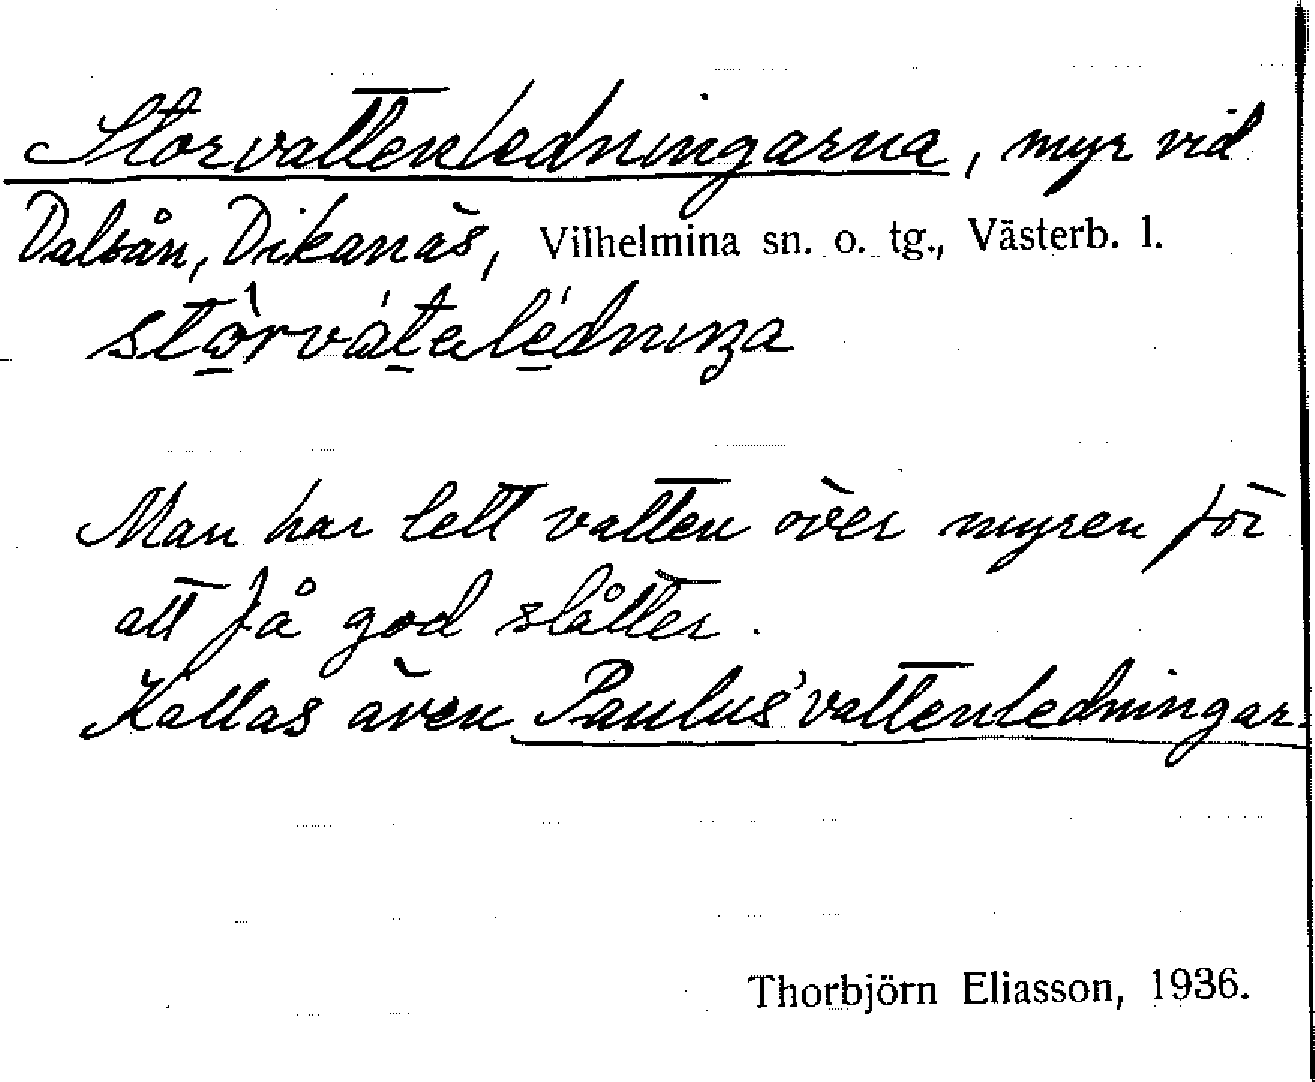 Storvattenledningarna, myr vid
Dalsån, Dikanäs, Vilhelmina sn. o. tg., Västerb. l.
Man har lett vatten över myren för
att få god slåtter.
Kallas även Paulus' vattenledningar
Thorbjörn Eliasson, 1936.